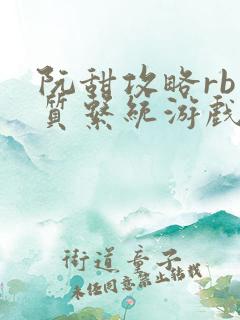 阮甜攻略rb
质系统游戏
街道童子
未经同意禁止转载